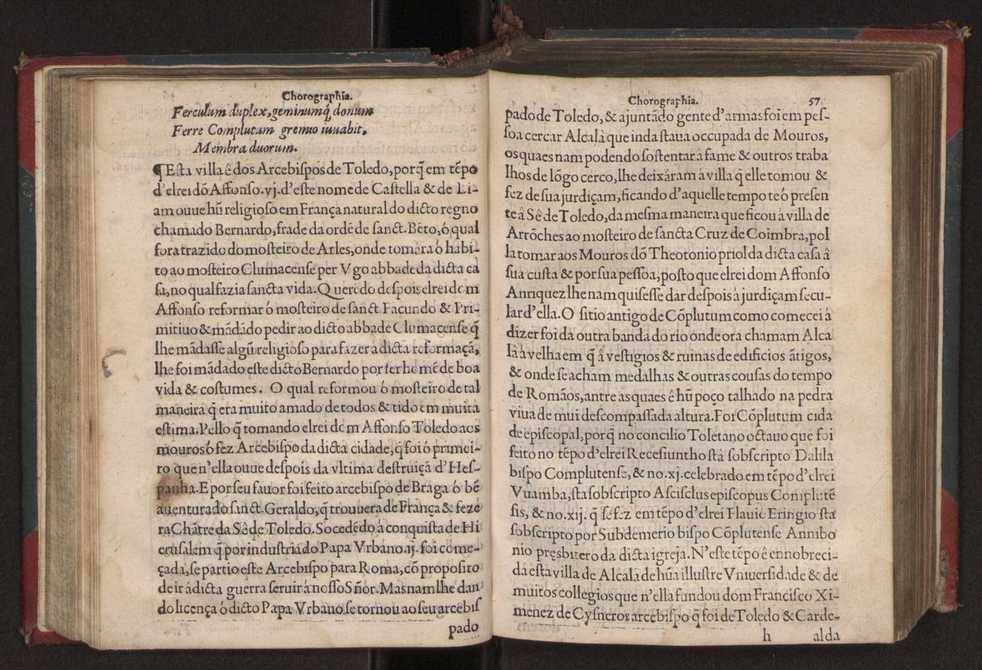 Chorographia.
Ferculum duplex, geminumq́ donum
Ferre Complutum gremio iuuabit,
Membra duorum.
¶Esta villa ê dos Arcebispos de Toledo, porq̃ em tẽpo
d'elrei dõ Affonso .vj. d'este nome de Castella & de Li-
am ouue hũ religioso em França natural do dicto regno
chamado Bernardo, frade da ordẽ de sanct. Bẽto, ó qual
fora trazido do mosteiro de Arles, onde tomára ó habi-
to ao mosteiro Clumacense per Vgo abbade da dicta ca
sa, no qual fazia sancta vida. Querẽdo despois elrei dom
Affonso reformar ó mosteiro de sanct Facundo & Pri-
mitiuo & mãdado pedir ao dicto abbade Clumacense q̃
lhe mãdasse algũ religioso para fazer a dicta reformaçã,
lhe foi mãdado este dicto Bernardo por ser homẽ de boa
vida & costumes. O qual reformou ó mosteiro de tal
maneira q̃ era muito amado de todos & tido em muita
estima. Pello q̃ tomando elrei dom Affonso Toledo aos
mouros ó fez Arcebispo da dicta cidade, q̃ foi ó primei-
ro que n'ella ouue despois da vltima destruiçã d'Hes-
panha. E por seu fauor foi feito arcebispo de Braga ó bẽ
auenturado sanct. Geraldo, q̃ trouuera de França & fezé
ra Chãtre da Sê de Toledo. Socedẽdo á conquista de Hi
erusalem q̃ por industria do Papa Vrbano .ij. foi come-
çada, se partio este Arcebispo para Roma, cõ proposito
de ir á dicta guerra seruir á nosso Sñor. Mas nam lhe dan
do licença ó dicto Papa Vrbano, se tornou ao seu arcebis
pado
Chorographia. 57
pado de Toledo, & ajuntãdo gente d'armas foi em pes-
soa cercar Alcalà que inda staua occupada de Mouros,
os quaes nam podendo sostentar á fame & outros traba
lhos de lõgo cerco, lhe deixáram á villa q̃ elle tomou &
fez de sua jurdiçam, ficando d'aquelle tempo teó presen
te á Sê de Toledo, da mesma maneira que ficou á villa de
Arrõches ao mosteiro de sancta Cruz de Coimbra, pol
la tomar aos Mouros dõ Theotonio priol da dicta casa á
sua custa & por sua pessoa, posto que elrei dom Affonso
Anriquez lhe nam quisesse dar despois á jurdiçam secu-
lar d'ella. O sitio antigo de Cõplutum como comecei á
dizer foi da outra banda do rio onde ora chamam Alca
là à velha em q̃ â vestigios & ruinas de edificios ãtigos,
& onde se acham medalhas & outras cousas do tempo
de Romãos, antre as quaes ê hũ poço talhado na pedra
viua de mui descompassada altura. Foi Cõplutum cida
de episcopal, porq̃ no concilio Toletano octauo que foi
feito no tẽpo d'elrei Recesiuntho stá sobscripto Dalila
bispo Complutense, & no .xj. celebrado em tẽpo d'elrei
Vuamba, sta sobscripto Ascisclus episcopus Complutẽ
sis, & no .xij. q̃ se fez em tẽpo d'elrei Flauio Eringio sta
sobscripto por Subdemerio bispo Cõplutense Annibo
nio presbitero da dicta igreja. N'este tẽpo ê ennobreci-
da esta villa de Alcala de hũa illustre Vniuersidade & de
muitos collegios que n'ella fundou dom Francisco Xi-
menez de Cysneros arcebispo q̃ foi de Toledo & Carde-
h alda